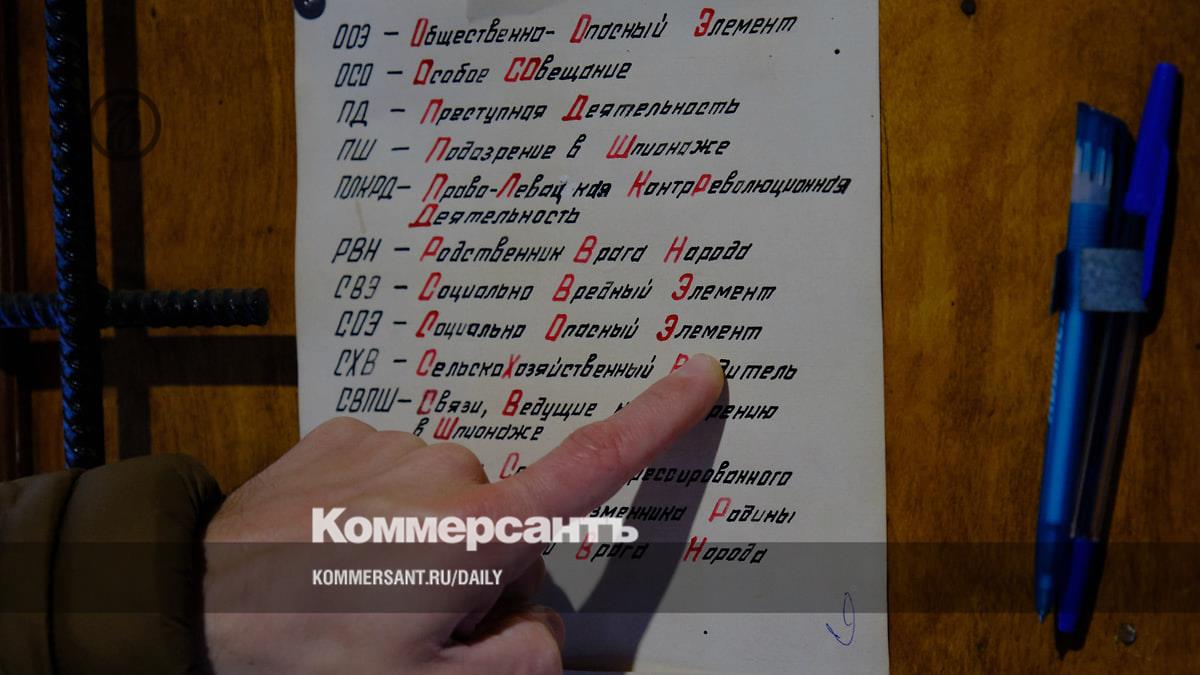 ООЭ – Общественно- Опасный Элемент
ОСО – Особое СОвещание
ПД – Преступная Деятельность
ПШ – Подозрение в Шпионаже
ПЛКРД – Право-Левацкая КонтрРеволюционная
Деятельность
РВН – Родственник Врага Народа
СВЭ – Социально Вредный Элемент
СОЭ – Социально Опасный Элемент
СХВ – СельскоХозяйственный
СВПШ – Связи, Ведущие
в Шпиондже
Родины
Врага Народа
Коммерсантъ
KOMMERSANT.RU/DAILY